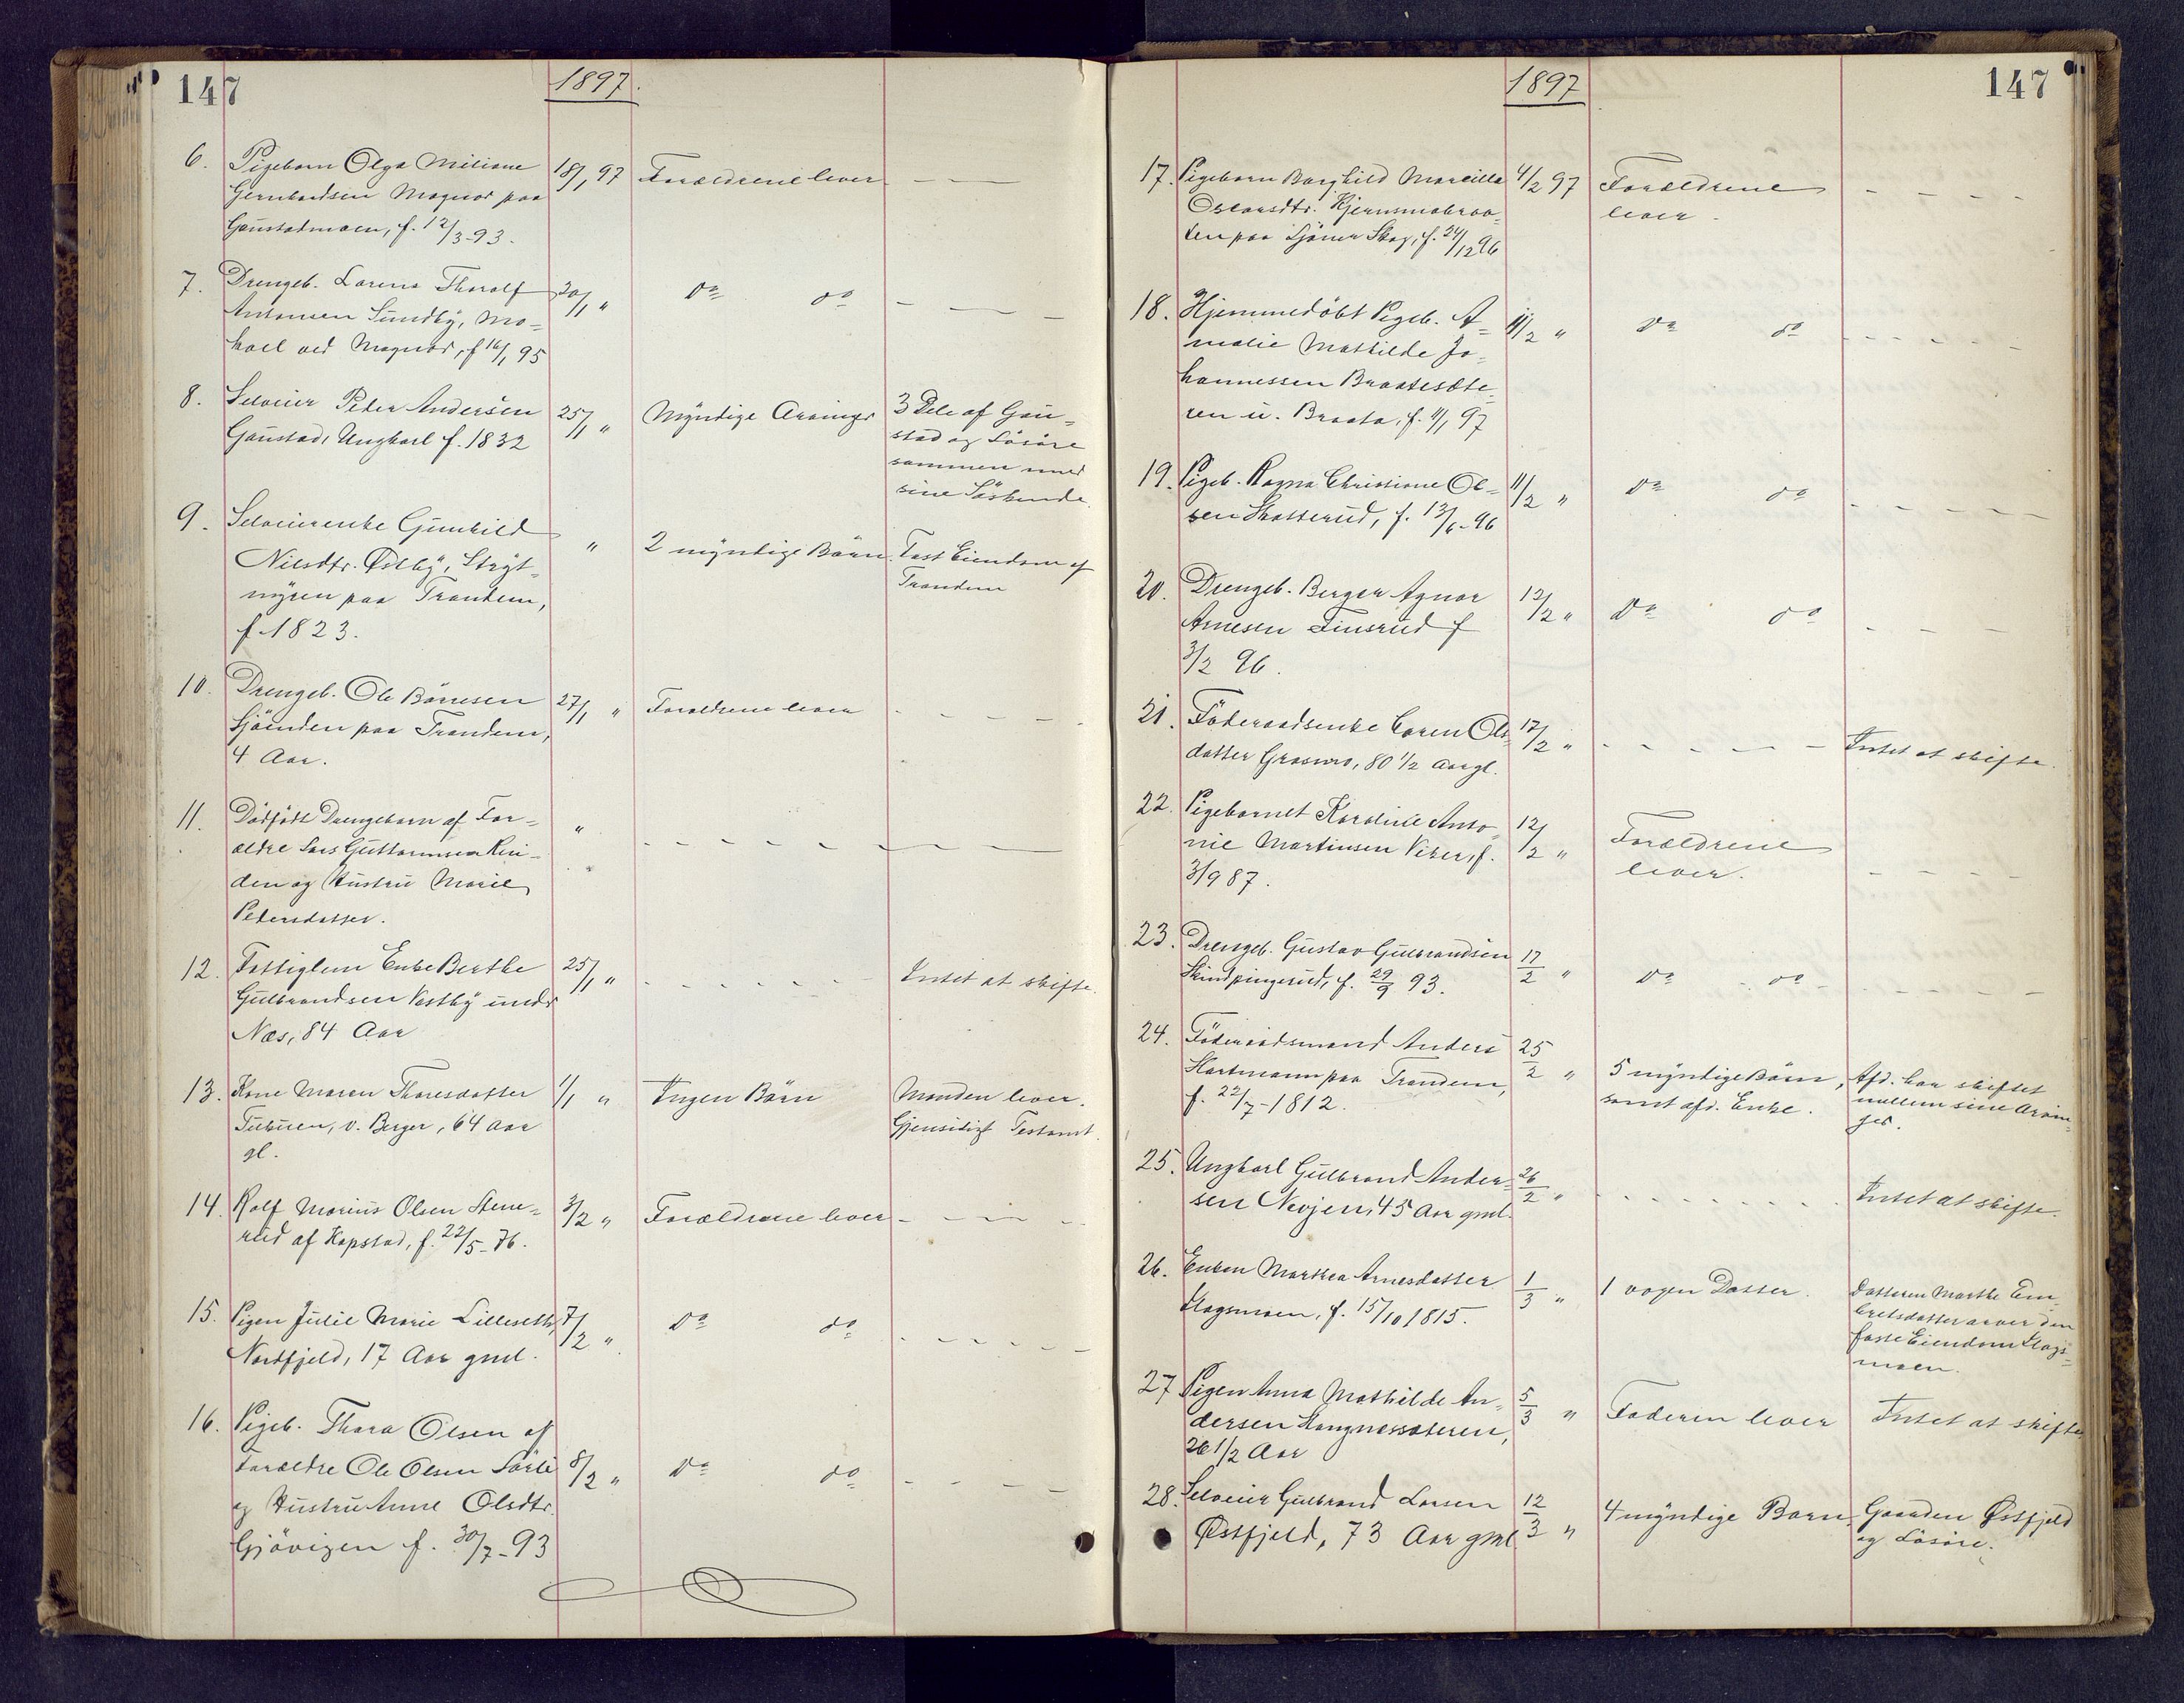 147
1897.
6. Pigebarn Olga Miliane 18/1 97 Forældrene lever - -
Gernhardsen Magnor paa
Gaustadmoen, f. 12/3-93.
7. Drengeb. Lorens Thoralf 20/1 " Do do - - -
Antonsen Sundby, Mo-
holl ved Magnor, f 16/1 95
8. Selveier Peder Andersen 25/1 " Myndige Arvinger 3 Dele af Gau-
Gaustad, Ungkarl f. 1832 stad og Løsøre
sammen med
sine Søskende.
9. Selveierenke Gunhild " 2 myndige Børn. Fast Eiendom af
Nilsdtr. Østby, Strýt- Trandem
myren paa Trandem,
f. 1823.
10. Drengeb. Ole Børresen 27/1 " Forældrene lever - - - -
Sjøenden paa Trandem,
4 Aar.
11. Dødfødt Drengebarn af For- " - - - - - - - -
ældre Lars Guttormsen
den og Hustru Marie
Pedersdatter.
12. Fattiglem Enke Berthe 25/1 " - - - - - - Intet at skifte.
Gulbrandsen Vestby under
Næs, 84 Aar
13. Kone Maren Thoresdatter 1/1 " Ingen Børn Manden lever.
v. Berger, 64 Aar Gjensidigt Testamt.
gl.
14. Rolf Marius Olsen Stene- 3/2 " Forældrene lever - - - -
rud af Kopstad, f. 22/5-76.
15. Pigen Julie Marie Lilleseth, 7/2 " Do do - - - - -
Nordfjeld, 17 Aar gml.
16. Pigeb. Thora Olsen af
Forældre Ole Olsen Sørli 8/2 " Do do - - - -
og Hustru Anne Olsdtr.
Gjøvigen f. 30/7-93
147
1897
17. Pigebarn Borghild Marcilla 4/2 97 Forældrene - - - -
Oscarsdtr. Kjernsmobraa- lever.
ten paa Skog, f. 24/12 96
18. Hjemmedøbt Pigeb. A- 11/2 " Do do - - - - -
malie Mathilde Jo-
hannessen Braatesæte-
ren u. Braata, f. 11/1 97
19. Pigeb. Ragna Christiane Ol- 11/2 " Do do - - - - -
sen Skotterud, f. 13/6-96
20. Drengeb. Berger Agnar 12/2 " Do do - - -
Arnesen Finsrud f
3/2 96.
21. Føderaadsenke Caren Ols- 12/2 " - - - - - - Intet at skifte.
datter Grasmo, 80 1/2 Aar gl.
22. Pigebarnet Karoline Anto- 12/2 " Forældrene
nie Martinsen Viker, f. lever. - - - -
3/9 87.
23. Drengeb. Gustav Gulbrandsen 17/2 " Do - do - - - - -
Skindpingerud, f. 29/9 93.
24. Føderaadsmand Anders 25/2 " 5 myndige Børn, Afd. har skiftet
Hartmann paa Trandem, samt afd. Enke. mellem sine Arvin-
f. 22/7-1812. ger.
25. Ungkarl Gulbrand Ander- 26/2 " - - - - - - - Intet at skifte.
sen Nevjen, 45 Aar gml.
26. Enken Marthea Arnesdatter 1/3 " 1 vogen Datter. Datteren Marthe Em-
Hagsmoen, f. 15/10 1815. bretsdatter arver den
faste Eiendom Hags-
moen.
27 Pigen Anna Mathilde An- 5/3 " Faderen lever Intet at skifte
dersen Kongnessæteren,
26 1/2 Aar
28. Selveier Gulbrand Larsen 12/3 " 4 myndige Børn. Gaarden Østfjeld
Østfjeld, 73 Aar gml og Løsøre.